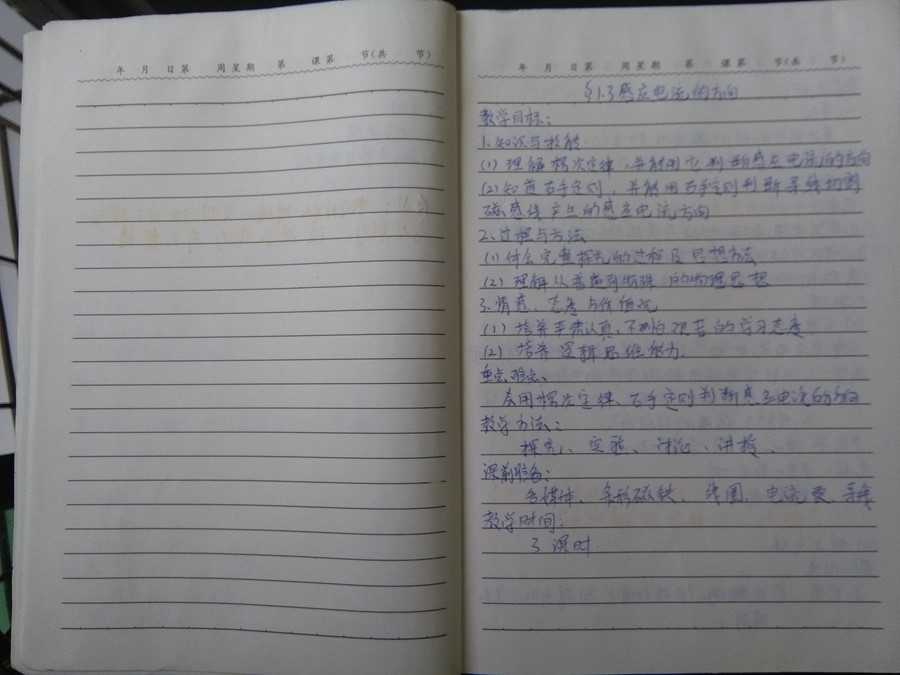 年 月 日第 周星期 第 课第 节(共 节)
年 月 日第 周星期 第 课第 节(共 节)
§1.3感应电流的方向
教学目标:
1.知识与技能
(1) 理解楞次定律,并能用它判断感应电流的方向
(2)知道右手定则,并能用右手定则判断导线切割
磁感线产生的感应电流方向
2.过程与方法
(1)体会完整探究的过程及思想方法
(2)理解从普遍到特殊的物理思想
3.情感、态度与价值观
(1)培养手脑认真、不怕艰苦的学习态度
(2)培养逻辑思维能力.
重点难点:
应用楞次定律、右手定则判断感应电流的方向
教学方法:
探究、实验、讨论、讲授、
课前准备:
多媒体、条形磁铁、线圈、电流表、导线
教学时间:
3课时